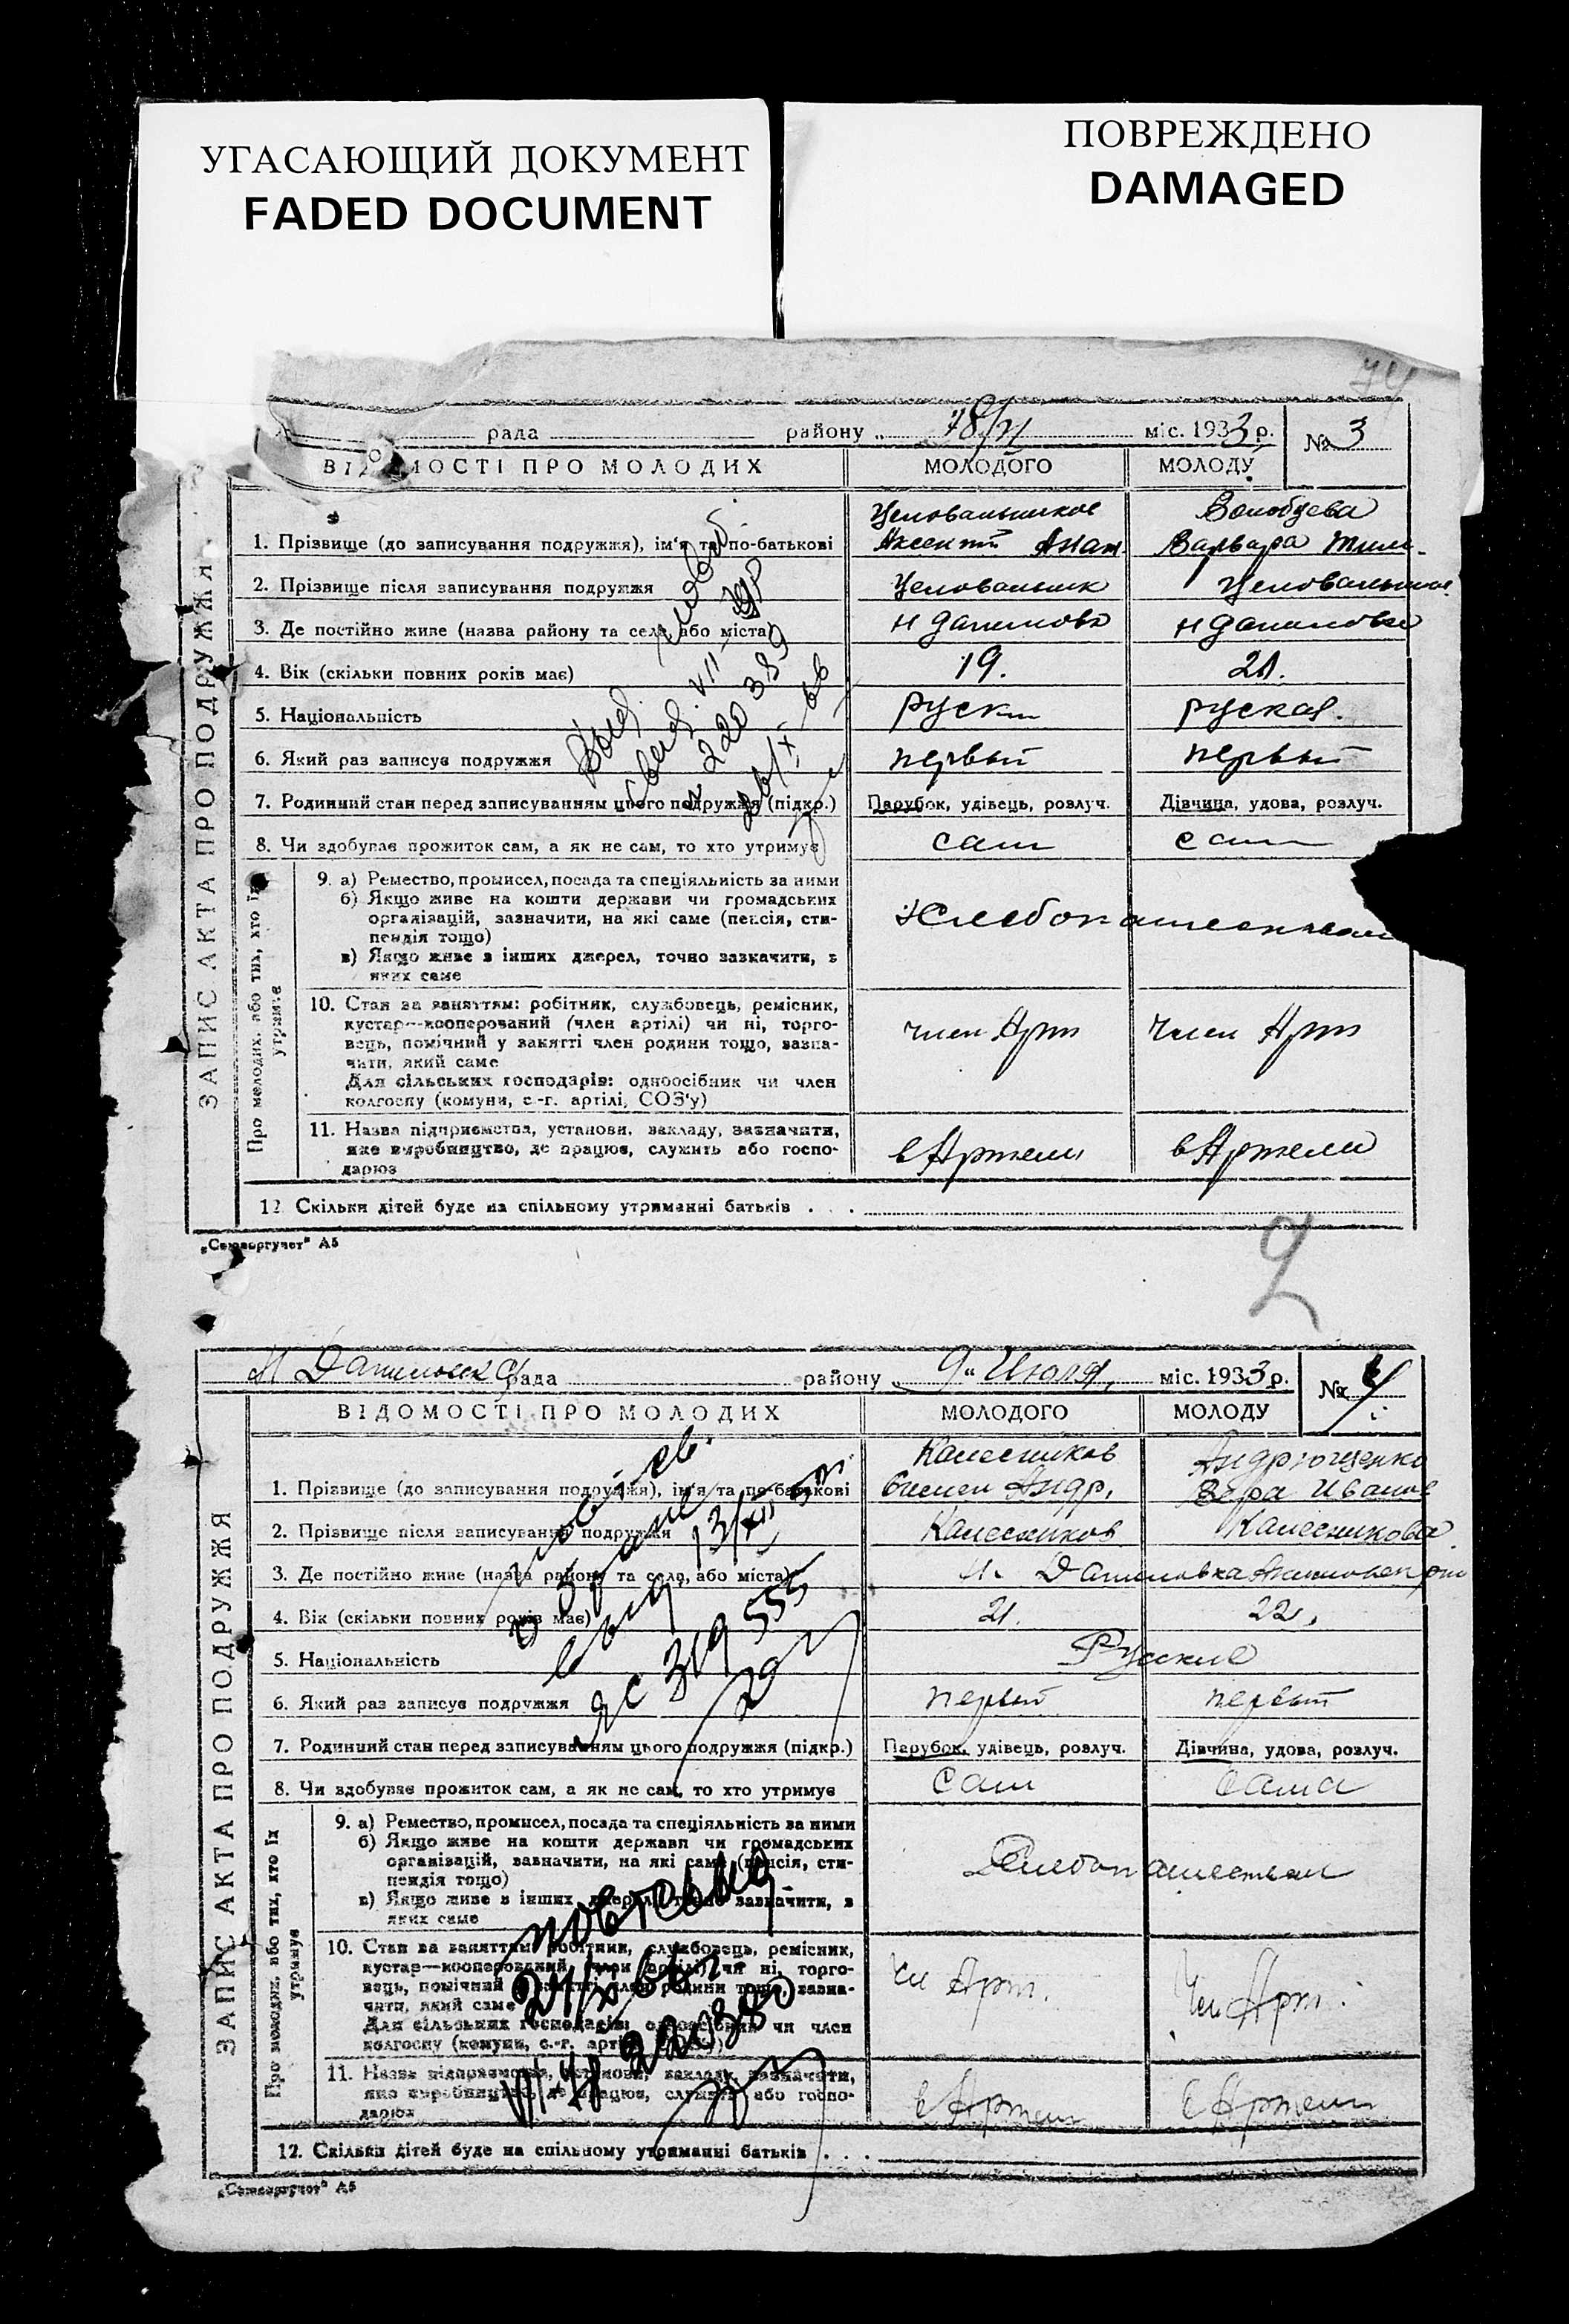 УГАСАЮЩИЙ ДОКУМЕНТ
FADED DOCUMENT
ПОВРЕЖДЕНО
DAMAGED
74
рада района "18/VI міс. 1933 р. № 3
ВІДОМОСТІ ПРО МОЛОДИХ МОЛОДОГО МОЛОДУ
Целовальников Волобуева
1. Прізвище (до записування подружжя), ім'я та по-батькові Аксентий Варвара
2. Прізвище після записування подружжя Целовальник Целовальник
3. Де постійно живе (назва району та села або міста) Н Даниловка Н Даниловка
4. Вік (скільки повних років має) 19. 21.
5. Національність руск руская.
6. Який раз записує подружжя первый первый
7. Родинний стан перед записуванням цього подружжя (підкр.) Парубок, удівець, розлуч. Дівчина, удова, розлуч.
8. Чи здобуває прожиток сам, а як не сам, то хто утримує сам сам
9. а) Ремество, промисел, посада та спеціяльність за ними
б) Якщо живе на кошти держави чи громадських
організацій, зазначити, на які саме (пенсія, сти-
пендія тощо)
в) Якщо живе з інших джерел, точно зазначити, з
яких саме
10. Стан за заняттям: робітник, службовець, ремісник,
кустар—кооперований (член артілі) чи ні, торго-
вець, помічний у занятті член родини тощо, зазна-
чити, який саме
член Арт член Арт
Для сільських господарів: одноосібник чи член
колгоспу (комуни, с.-г. артілі, СОЗ'у)
11. Назва підприємства, установи, закладу, зазначити,
яке виробництво, де працює, служить або госпо-
дарює
в Артели в Артели
12. Скільки дітей буде на спільному утриманні батьків . . .
ЗАПИС АКТА ПРО ПОДРУЖЖЯ
Про молодих, або тих, хто їх
утримує
VII-ЯР
220389
"Союзоргучет" А5
2
Н Даниловск рада району "9" Июля, міс. 1933 р. № 4
ВІДОМОСТІ ПРО МОЛОДИХ МОЛОДОГО МОЛОДУ
Калесников Андрющенко
1. Прізвище (до записування подружжя), ім'я та по-батькові Андр, Вера Иванов
2. Прізвище після записування подружжя Калесников Калесникова
3. Де постійно живе (назва району та села, або міста) Н. Даниловка
4. Вік (скільки повних років має) 21. 22,
5. Національність Руские
6. Який раз записує подружжя первый первый
7. Родинний стан перед записуванням цього подружжя (підкр.) Парубок, удівець, розлуч. Дівчина, удова, розлуч.
8. Чи здобуває прожиток сам, а як не сам, то хто утримує сам сама
9. а) Ремество, промисел, посада та спеціяльність за ними
б) Якщо живе на кошти держави чи громадських
організацій, зазначити, на які саме (пенсія, сти-
пендія тощо)
в) Якщо живе з інших джерел, точно зазначити, з
яких саме
10. Стан за заняттям: робітник, службовець, ремісник,
кустар—кооперований (член артілі) чи ні, торго-
вець, помічний у занятті член родини тощо, зазна-
чити, який саме
Чл Арт. Чл Арт.
Для сільських господарів: одноосібник чи член
колгоспу (комуни, с.-г. артілі, СОЗ'у)
11. Назва підприємства, установи, закладу, зазначити,
яке виробництво, де працює, служить або госпо-
дарює
в Артели в Артели
12. Скільки дітей буде на спільному утриманні батьків . . .
ЗАПИС АКТА ПРО ПОДРУЖЖЯ
Про молодих, або тих, хто їх
утримує
ЯС 319555
повторна
"Союзоргучет" А5